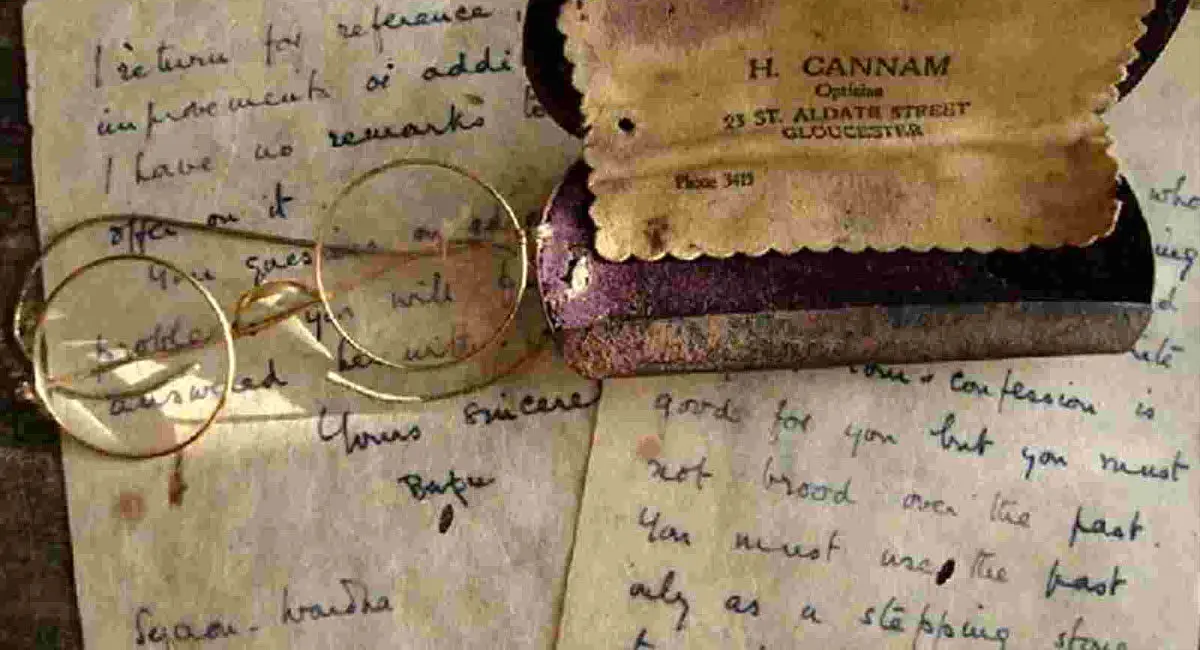 I return for reference
improvements or addi
I have no remarks to
offer on it
Your
proble you will
answered he will
Yours sincere
Bapu
Segaon. Wardha
H. CANNAM
Optician
23 ST. ALDATE STREET
GLOUCESTER
Phone 3413
who
ing
d
ite
confession is
good for you but you must
not brood over the past.
You must use the past
only as a stepping stone